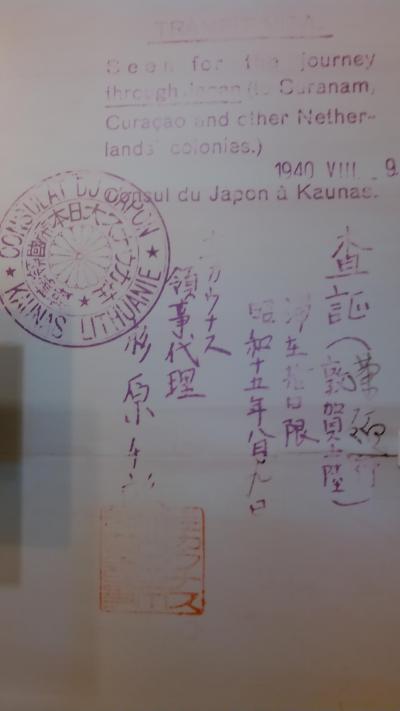 TRANSIT VISA.
Seen for the journey
through Japan (to Suranam,
Curaçao and other Nether-
lands' colonies.)
1940 VIII 9
Consul du Japon à Kaunas.
CONSULAT DU JAPON
KAUNAS LITHUANIE
査証(敦賀上陸)
滞在拾日限
昭和十五年八月九日
カウナス
領事代理
杉原千